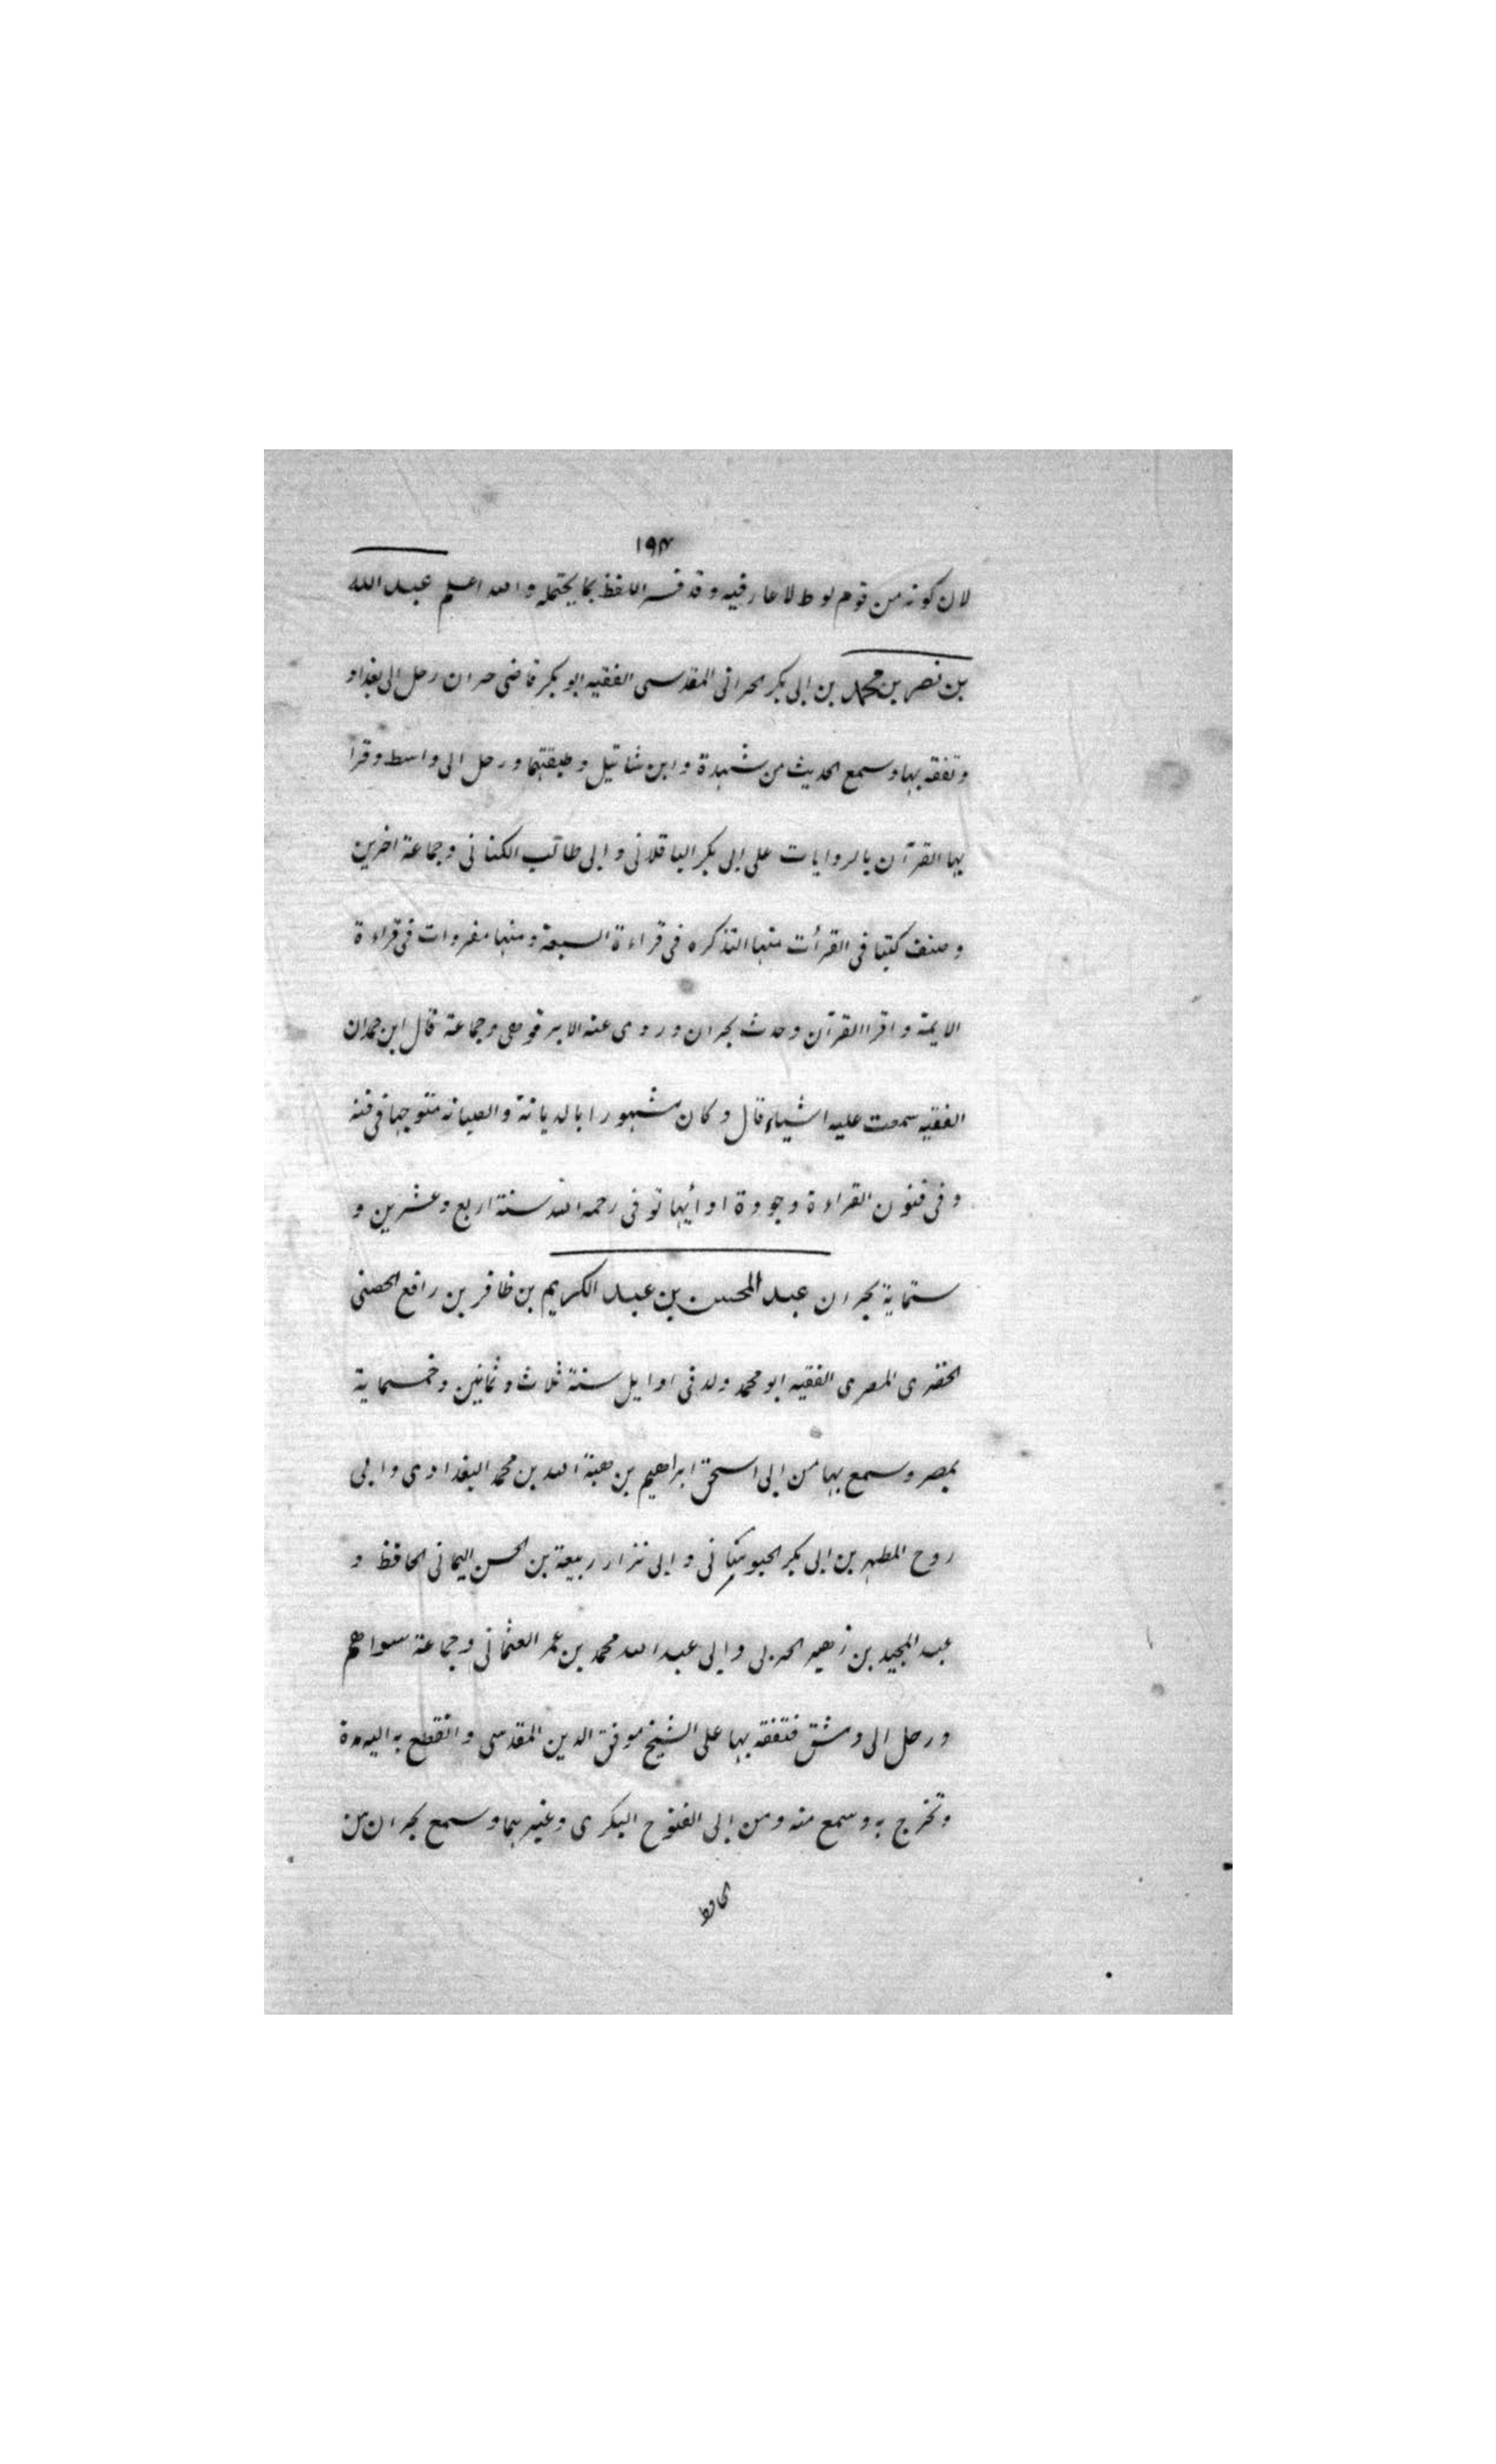 ١٩٣
لان كونه من قوم لوط لا عار فيه وقد فسر اللفظ بما يحتمله والله اعلم عبد الله
بن نصر بن محمد بن ابى بكر الحرانى المقدسى الفقيه ابو بكر قاضى حران رحل الى بغداد
وتفقه بها وسمع الحديث من شهدة وابن شاتيل وطبقتهما ورحل الى واسط وقرا
بها القرآن بالروايات على ابى بكر الباقلانى وابى طالب الكنانى وجماعة اخرين
وصنف كتبا فى القرأت منها التذكره فى قراءة السبعة ومنها مفردات فى قراءة
الايمة واقرا القرآن وحدث بحران وروى عنه الابرقوهى وجماعة قال ابن حمدان
الفقيه سمعت عليه اشياء قال وكان مشهورا بالديانة والصيانه متوجها فى فنه
وفى فنون القراءة وجودة ادائها توفى رحمه الله سنة اربع وعشرين و
ستماية بحران عبد المحسن بن عبد الكريم بن ظافر بن رافع الحصنى
الحضرى المصرى الفقيه ابو محمد ولد فى اوايل سنة ثلاث وثمانين وخمسماية
بمصر وسمع بها من ابى اسحق ابراهيم بن هبة الله بن محمد البغدادى وابى
روح المطهر بن ابى بكر وابى نزار ربيعة بن الحسن اليمانى الحافظ و
عبد المجيد بن زهير الحربى وابى عبد الله محمد بن عمر العثمانى وجماعة سواهم
ورحل الى دمشق فتفقه بها على الشيخ موفق الدين المقدسى وانقطع به اليه مدة
وتخرج به وسمع منه ومن ابى الفتوح البكرى وغيرهما وسمع بحران من
الحافظ